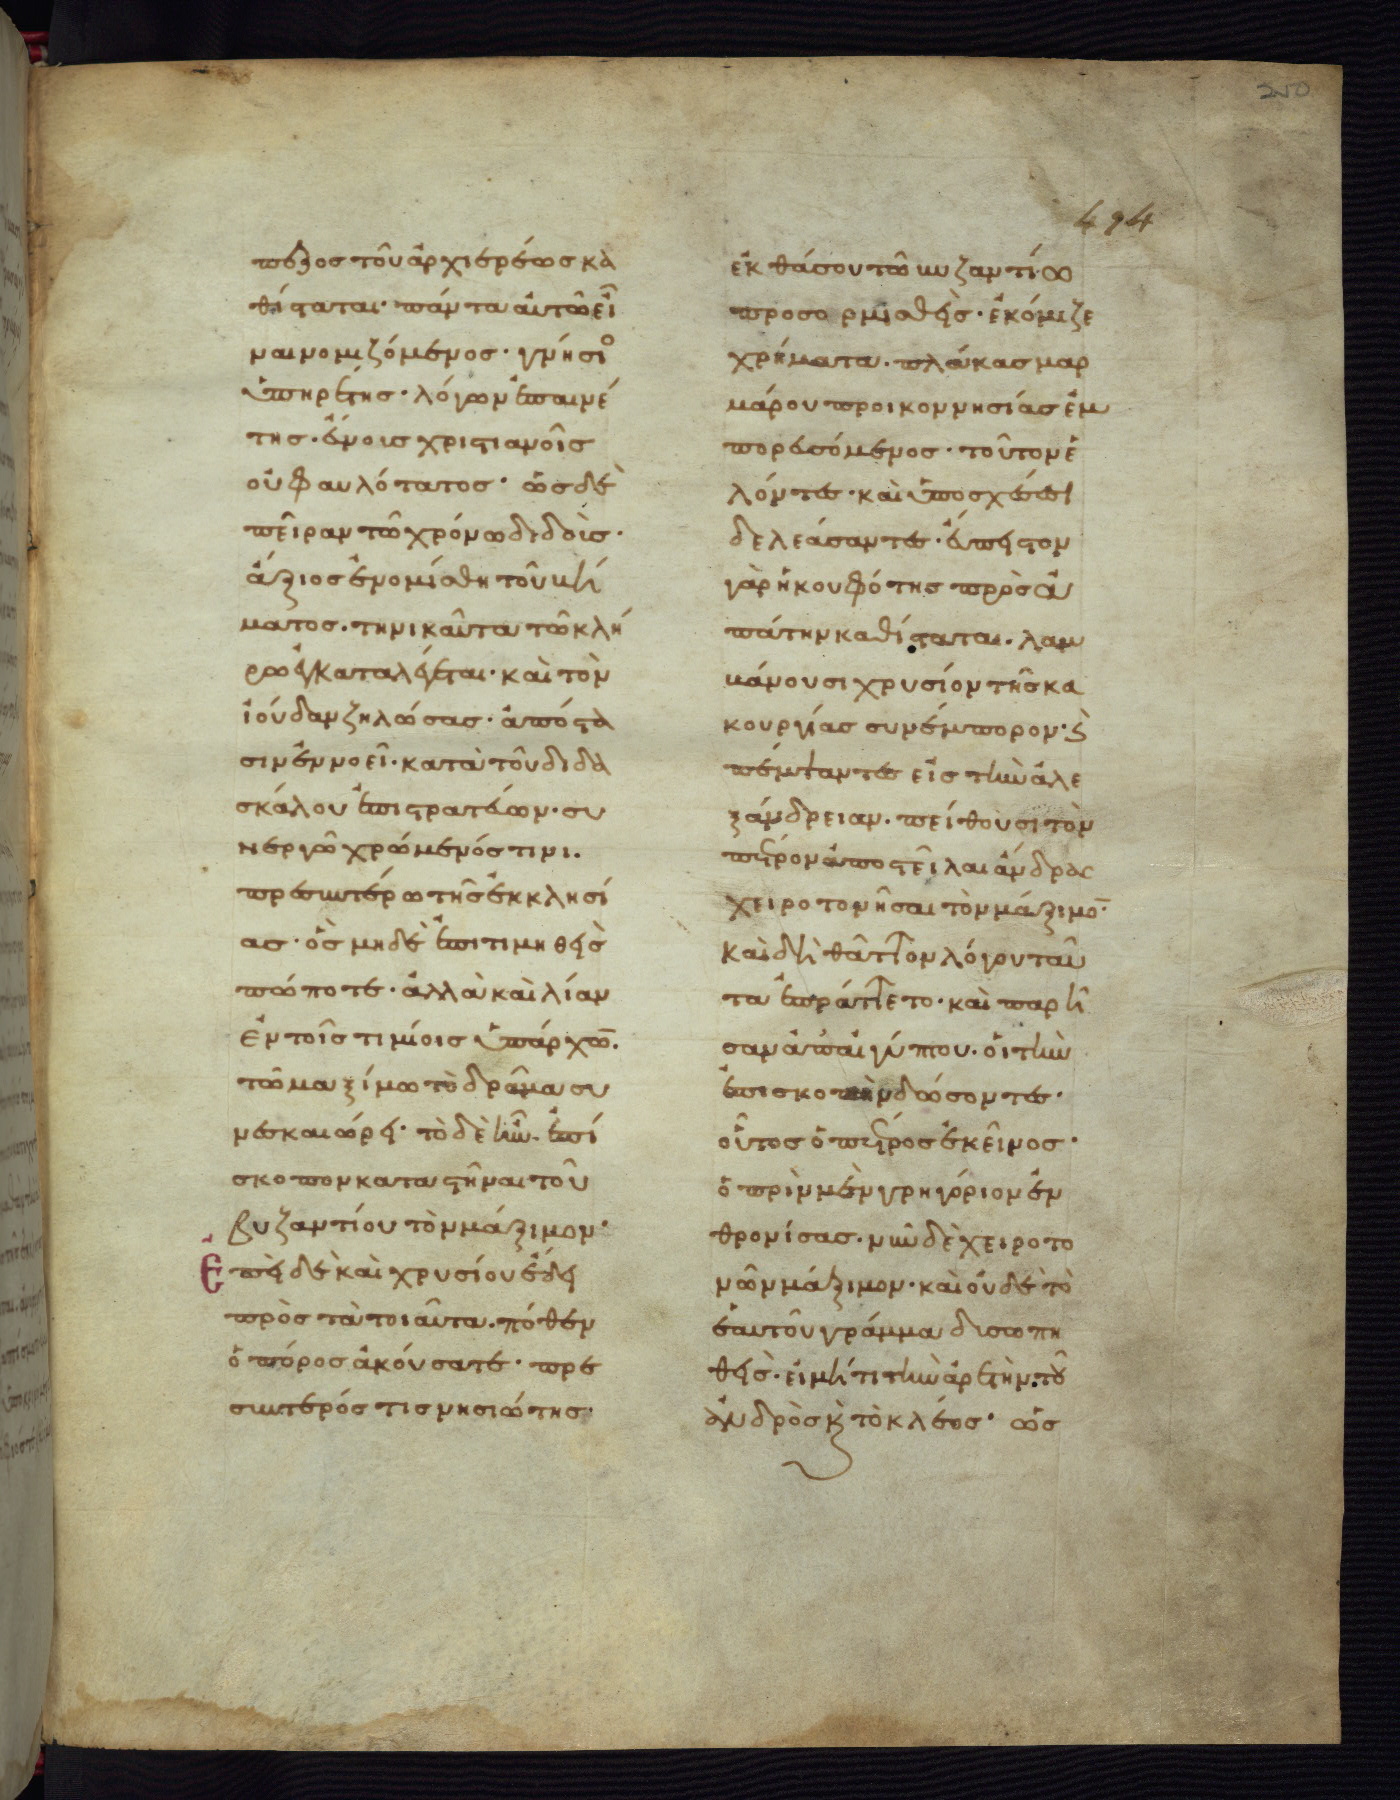 250
494
πεζος τοῦ ἀρχιερέως κα
θίσταται· πάντα αὐτῶ εἶ
ναι νομιζόμενος· γνήσιο
ὑπηρέτης· λόγων ἐπαινέ
της· ἐν οις χριστιανοῖς
οὐ φαυλότατος· ὡς δὲ
πεῖραν τῶ χρόνω διδοὺς·
ἄξιος ἐνομίσθη τοῦ βή
ματος. τηνικαῦτα τῶ κλή
ρω ἐγκαταλέγεται· καὶ τὸν
ἰούδαν ζηλώσας· ἀποστα
σιν ἐννοεῖ· κατὰ τοῦ διδα
σκάλου ἐπιστρατεύων· συ
νεργῶ χρώμενός τινι.
πρεσβυτέρω τῆς ἐκκλησί
ας· ὃς μηδὲ ἐπιτιμηθεὶς
πώποτε· ἀλλὰ καὶ λίαν
ἐν τοῖς τιμίοις ὑπάρχων.
τῶ μαξίμω τὸ δρᾶμα συ
νεσκαιώρει· τὸ δὲ ἦν· ἐπί
σκοπον καταστῆναι τοῦ
βυζαντίου τὸν μάξιμον·
Ἐπεὶ δὲ καὶ χρυσίου ἔδει
πρὸς τὰ τοιαῦτα. πόθεν
ὁ πόρος ἀκούσατε· πρε
σβυτερός τις νησιώτης·
ἐκ θάσου τῶ βυζαντίω
προσορμισθεὶς· ἐκόμιζε
χρήματα. πλάκας μαρ
μάρου προικοννησίας ἐμ
πορευσόμενος· τοῦτον ἑ
λόντες· καὶ ὑποσχέσεσι
δελεάσαντες· εὔπιστον
γὰρ ἡ κουφότης πρὸς ἀ
πάτην καθίσταται. λαμ
βάνουσι χρυσίον τῆς κα
κουργίας συνέμπορον· καὶ
πέμψαντες εἰς τὴν ἀλε
ξάνδρειαν. πείθουσι τὸν
πέτρον ἀποστεῖλαι ἄνδρας
χειροτονῆσαι τὸν μάξιμον·
καὶ δὴ θᾶττον λόγου ταῦ
τα ἐπράττετο· καὶ παρῆ
σαν ἀπ αἰγύπτου. οἱ τὴν
ἐπισκοπὴν δώσοντες·
οὗτος ὁ πέτρος ἐκεῖνος·
ὁ πρὶν μὲν γρηγόριον ἐν
θρονίσας. νῦν δὲ χειροτο
νῶν μάξιμον· καὶ οὐδὲ τὸ
ἑαυτοῦ γράμμα δυσωπη
θεὶς· εἰ μή τι τὴν ἀρετὴν τοῦ
ἀνδρὸς καὶ τὸ κλέος· ὡς